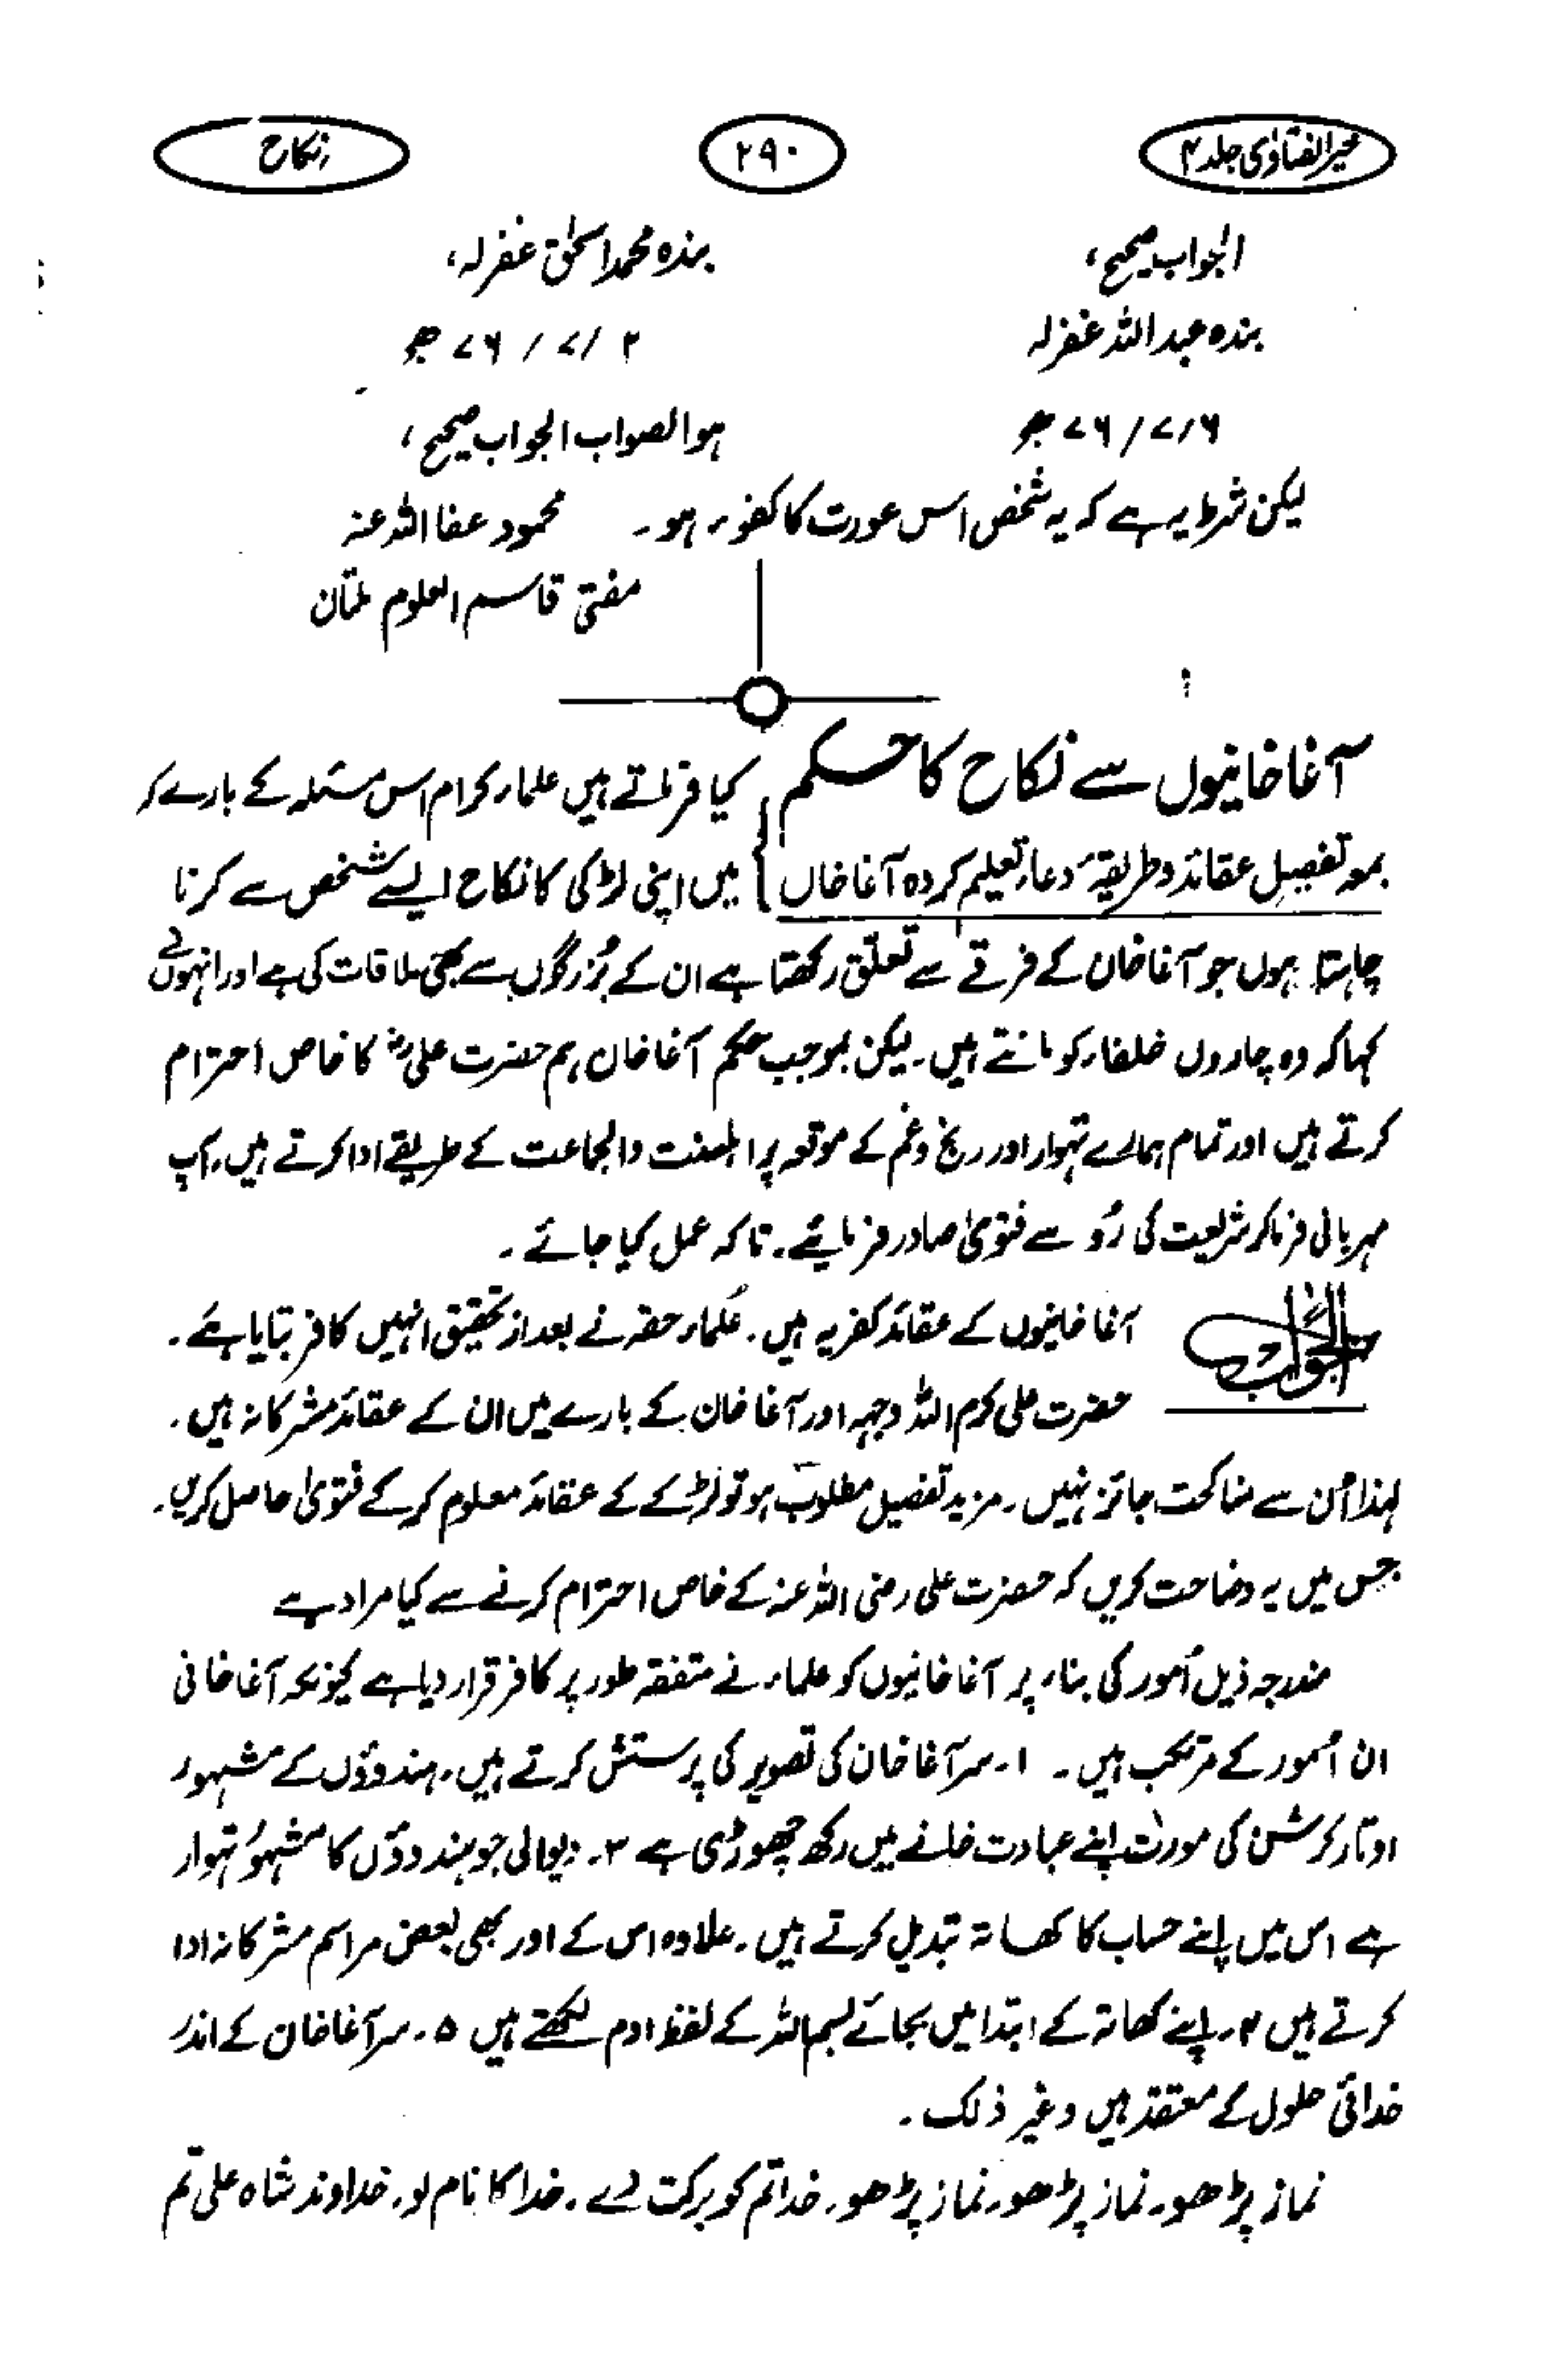 خیر الفتاوی جلد ۴
۲۹۰
نکاح
الجواب صحیح،
بندہ محمد اسحٰق غفرلہ،
بندہ عبداللہ غفرلہ
۲ / ۷ / ۷۶ ھ
۶ / ۷ / ۷۶ ھ
ہوالصواب الجواب صحیح،
لیکن شرط یہ ہے کہ یہ شخص اس عورت کا کفو ہو۔ محمود عفا اللہ عنہ
مفتی قاسم العلوم ملتان
آغاخانیوں سے نکاح کا حکم
کیا فرماتے ہیں علماء کرام اس مسئلہ کے بارے کہ
بمعہ تفصیل عقائد و طریقۂ دعاء تعلیم کردہ آغاخاں
میں اپنی لڑکی کا نکاح ایسے شخص سے کرنا
چاہتا ہوں جو آغاخاں کے فرقے سے تعلق رکھتا ہے ان کے بزرگوں سے بھی ملاقات کی ہے اور انہوں نے
کہا کہ وہ چاروں خلفاء کو مانتے ہیں۔ لیکن بموجب حکم آغاخان ہم حضرت علیؓ کا خاص احترام
کرتے ہیں اور تمام ہمارے تہوار اور رنج و غم کے موقعہ پر اہلسنت والجماعت کے طریقے ادا کرتے ہیں۔ آپ
مہربانی فرما کر شریعت کی رُو سے فتویٰ صادر فرمایئے۔ تاکہ عمل کیا جائے۔
الجواب
آغاخانیوں کے عقائد کفریہ ہیں۔ علماء حضر نے بعد از تحقیق انہیں کافر بتایا ہے۔
حضرت علی کرم اللہ وجہہ اور آغاخان کے بارے میں ان کے عقائد مشرکانہ ہیں۔
لہذا اُن سے مناکحت جائز نہیں۔ مزید تفصیل مطلوب ہو تو لڑکے کے عقائد معلوم کر کے فتویٰ حاصل کریں۔
جس میں یہ وضاحت کریں کہ حضرت علی رضی اللہ عنہ کے خاص احترام کرنے سے کیا مراد ہے
مندرجہ ذیل اُمور کی بناء پر آغاخانیوں کو علماء نے متفقہ طور پر کافر قرار دیا ہے کیونکہ آغاخانی
ان اُمور کے مرتکب ہیں۔ ۱۔ سر آغاخان کی تصویر کی پرستش کرتے ہیں۔ ہندوؤں کے مشہور
اوتار کرشن کی مورت اپنے عبادت خانے میں رکھ چھوڑی ہے ۳۔ دیوالی جو ہندوؤں کا مشہور تہوار
ہے اس میں اپنے حساب کا کھاتہ تبدیل کرتے ہیں۔ علاوہ اس کے اور بھی بعض مراسم مشرکانہ ادا
کرتے ہیں ۴۔ اپنے کھاتہ کے ابتدا میں بجائے بسم اللہ کے لفظ اوم لکھتے ہیں ۵۔ سر آغاخان کے اندر
خدائی حلول کے معتقد ہیں وغیر ذلک۔
نماز پڑھو۔ نماز پڑھو۔ نماز پڑھو۔ خدا تم کو برکت دے۔ خدا کا نام لو۔ خداوند شاہ علی تم